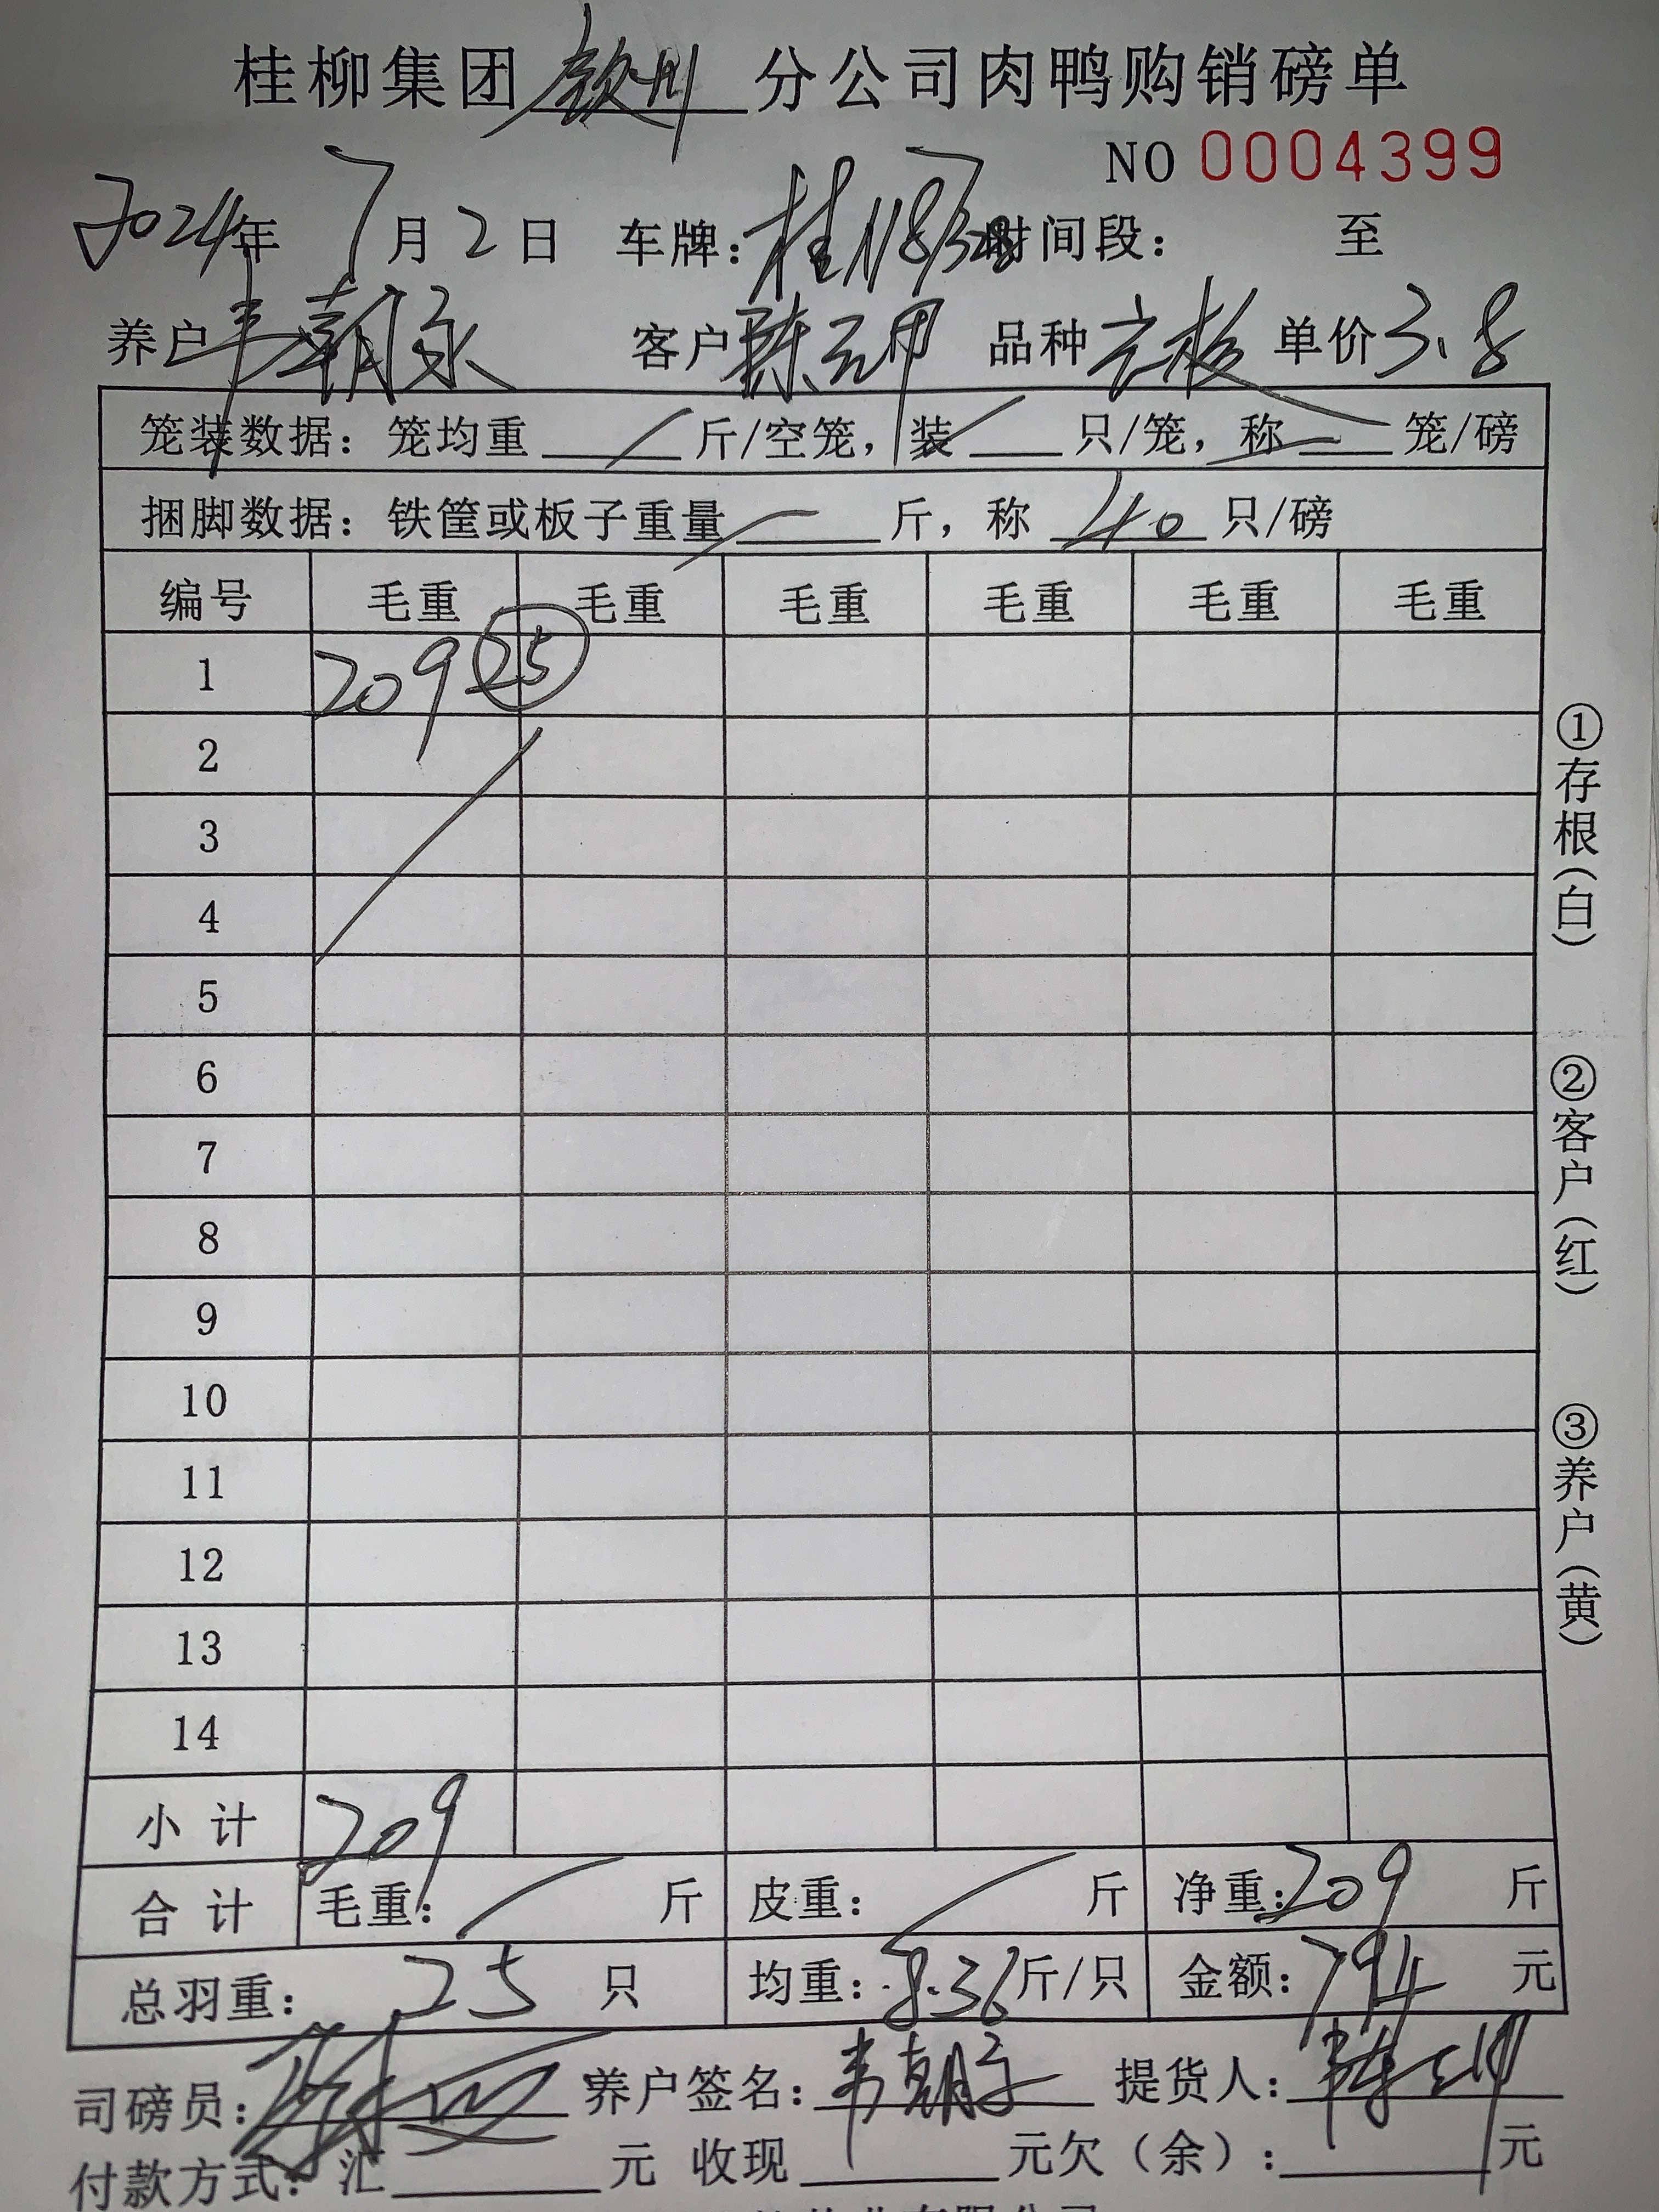 桂柳集团钦州分公司肉鸭购销磅单
NO 0004399
2024年7月2日 车牌:桂N 时间段: 至
养户韦朝 客户陈 品种 单价3.8
笼装数据:笼均重 斤/空笼,装 只/笼,称 笼/磅
捆脚数据:铁筐或板子重量 斤,称 40 只/磅
编号 毛重 毛重 毛重 毛重 毛重 毛重
1 209 25
2
3
4
5
6
7
8
9
10
11
12
13
14
小计 209
合计 毛重: 斤 皮重: 斤 净重:209 斤
总羽重: 25 只 均重:8.36斤/只 金额:794 元
司磅员: 养户签名:韦朝 提货人:陈
付款方式:汇 元 收现 元欠(余): 元
①存根(白)
②客户(红)
③养户(黄)